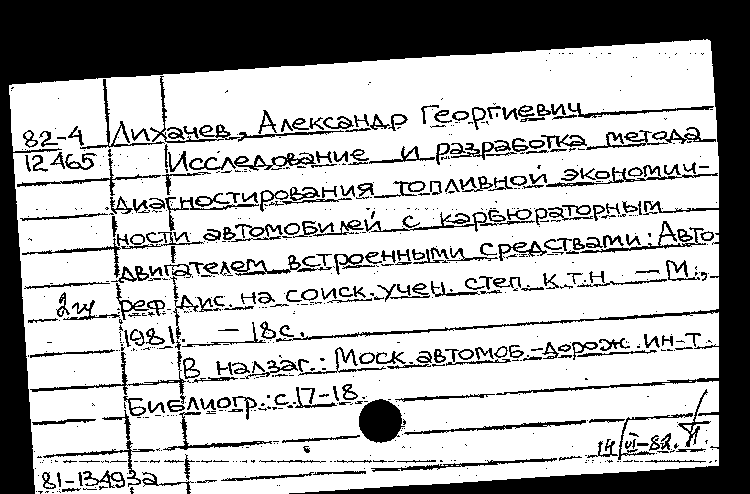 82-4 Лихачев, Александр Георгиевич
12465 Исследование и разработка метода
диагностирования топливной экономич-
ности автомобилей с карбюраторным
двигателем встроенными средствами: Авто-
реф. дис. на соиск. учен. степ. к.т.н. — М.,
1981. — 18 с.
В надзаг.: Моск. автомоб.-дорож. ин-т.
Библиогр.: с. 17-18
14/VI-82.
81-13493а